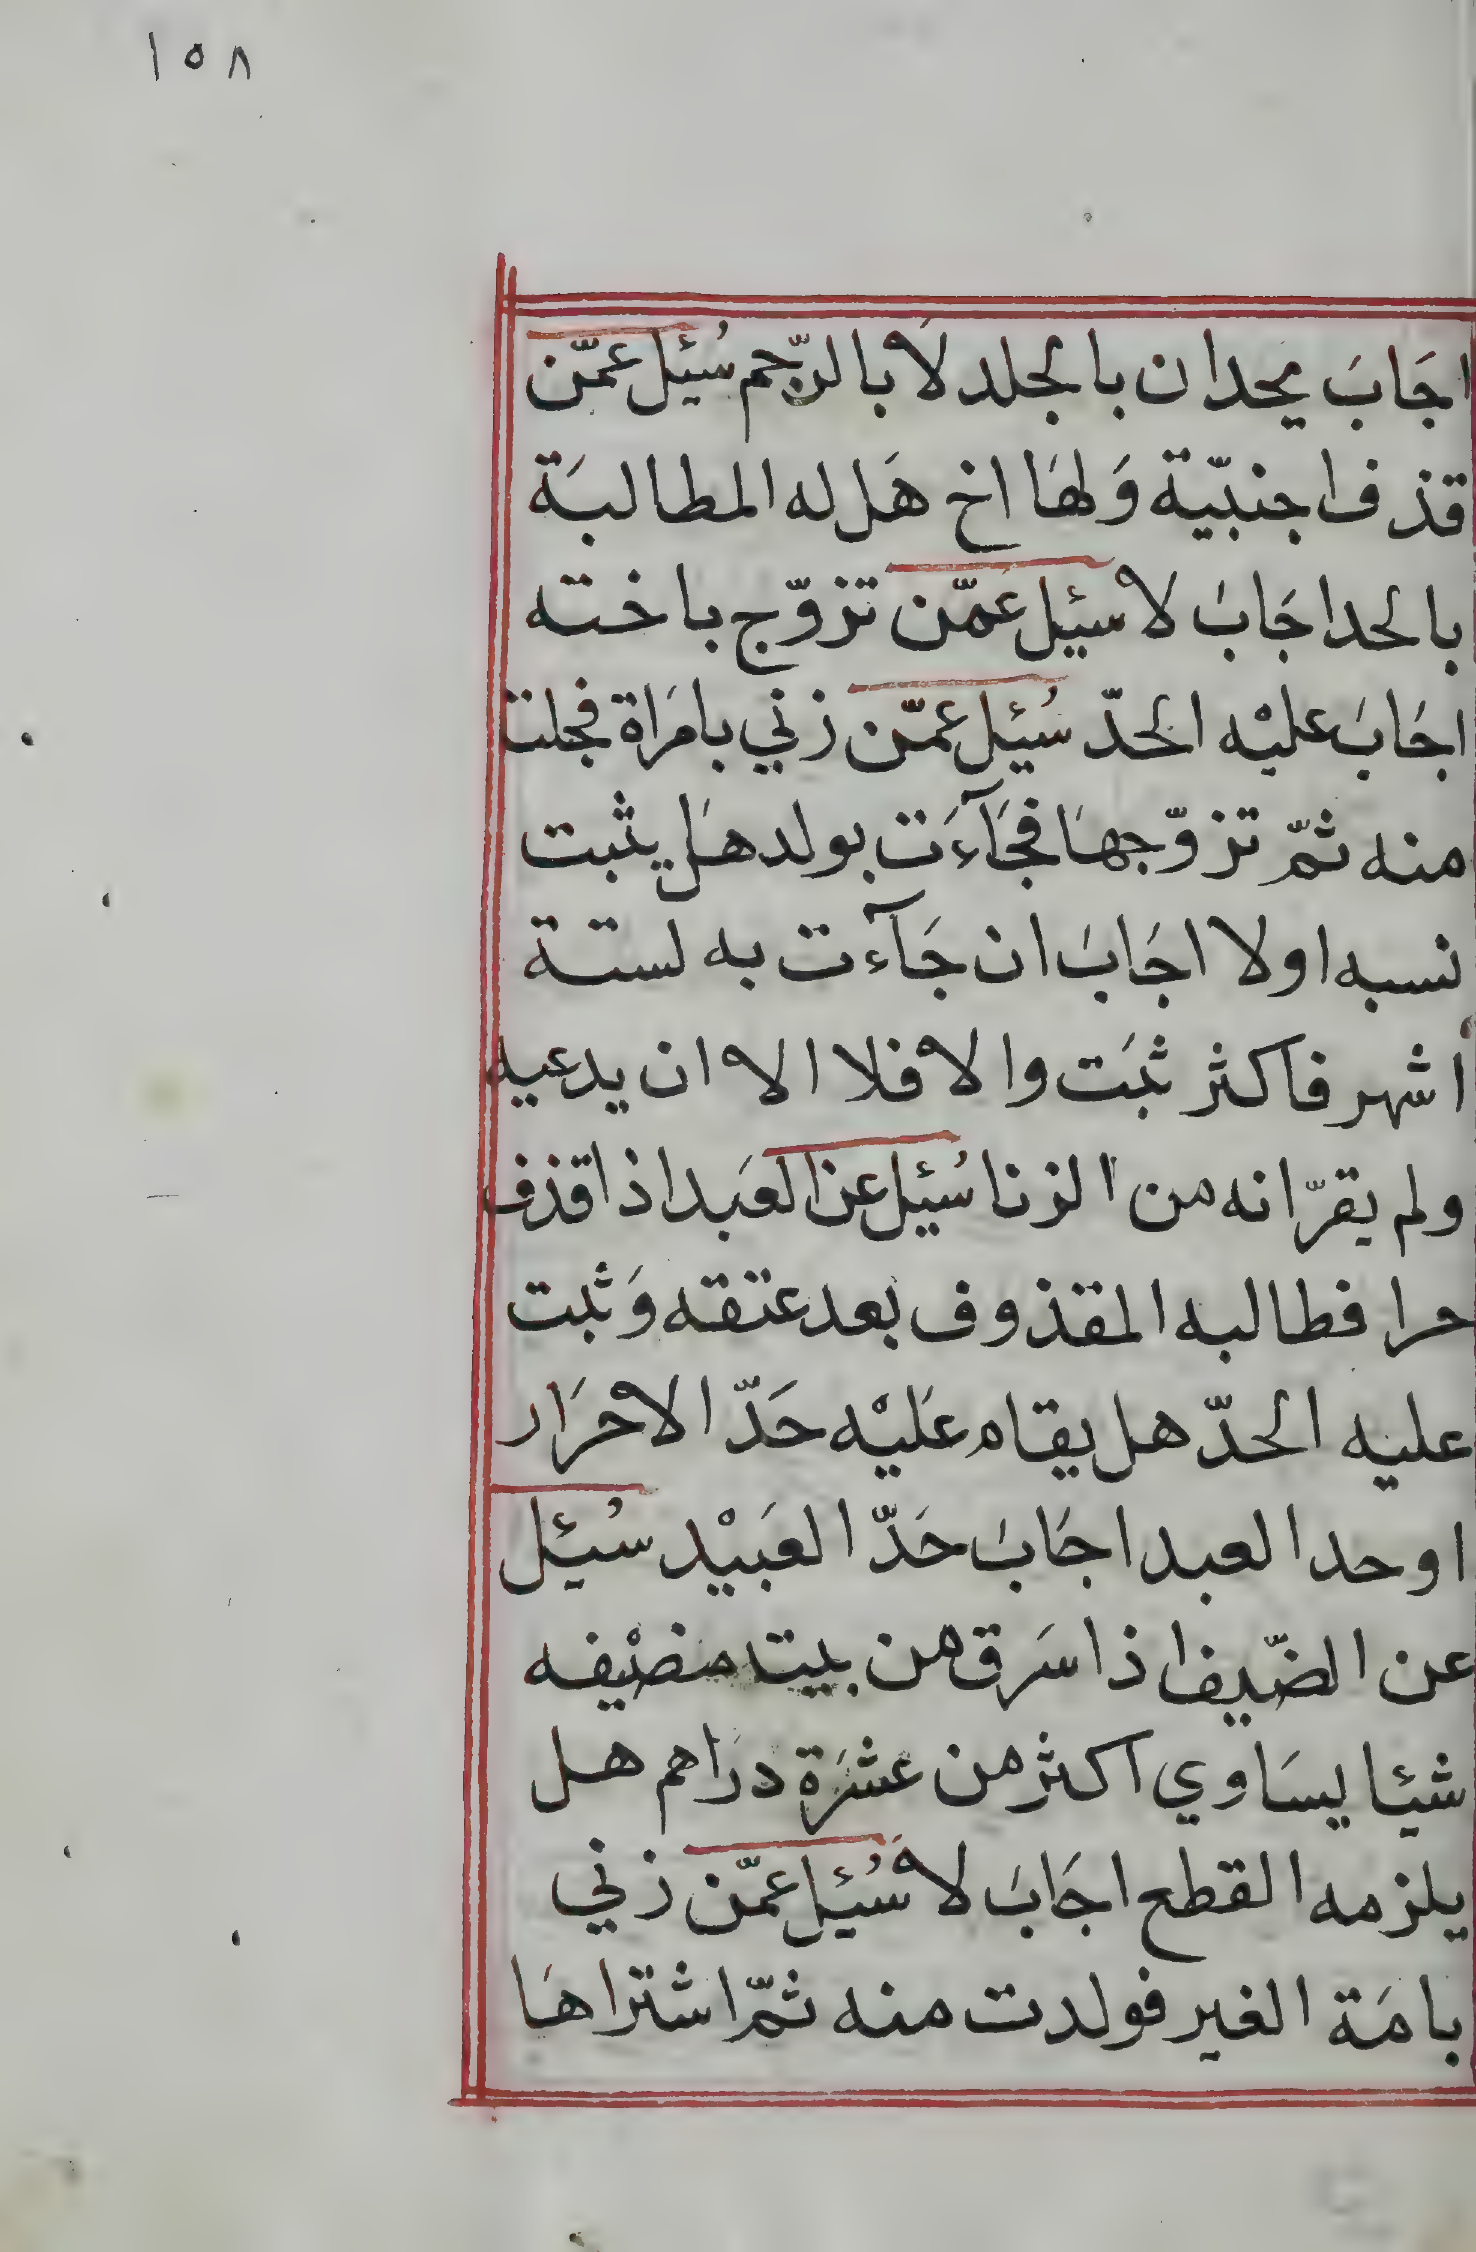 ١٥٨
اجَابَ يحدان بالجلد لَا بالرّجم سُئيل عمّن
قذف اجنبيّة وَلهَا اخ هَل له المطالبَة
بالحد اجَابَ لا سئيل عَمّن تزوّج باخته
اجَابَ عليْه الحَدّ سُئيل عمّن زني بامرَاة فحملت
منه ثمّ تزوّجهَا فجَآءَت بولد هَل يثبت
نسبه اولا اجَابَ ان جَآءت به لستة
أشهر فاكثر ثبَت والا فلا الا ان يدعيه
ولم يقرّ انه من الزنا سُئيل عن العَبد اذا قذف
حرا فطالبه المقذوف بعد عتقه وَثبت
عليه الحدّ هل يقام عَليْه حَدّ الاحرَار
او حد العبد اجَابَ حَدّ العَبيْد سُئيل
عن الضّيف اذا سَرق من بيت مضيْفه
شيئا يسَاوي اكثر من عشرَة دَراهم هل
يلزمه القطع اجَابَ لَا سُئيل عمّن زني
بامَة الغير فولدت منه ثمّ اشتراهَا